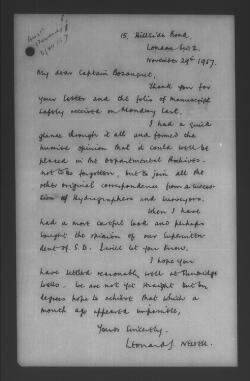 15, Hillside Road,
London SW2.
November 29th 1957.
My dear Captain Bosanquet,
Thank you for
your letter and the folio of manuscript
safely received on Monday last.
I had a quick
glance through it all and formed the
humble opinion that it could well be
placed in the Departmental Archives -
not to be forgotten, but to join all the
other original correspondence from a succes-
sion of Hydrographers and Surveyors.
When I have
had a most careful look and perhaps
sought the opinion of our Superinten
dent of S.D. I will let you know.
I hope you
have settled reasonably well at Tunbridge
Wells. We are not yet straight but by
degrees hope to achieve that which a
month ago appeared impossible,
Yours Sincerely.
Leonard S.